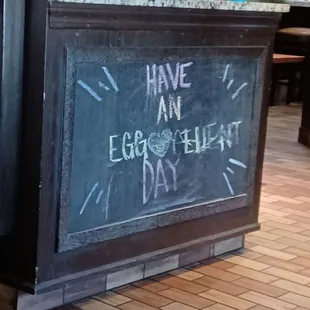 HAVE
AN
EGG CELLENT
DAY